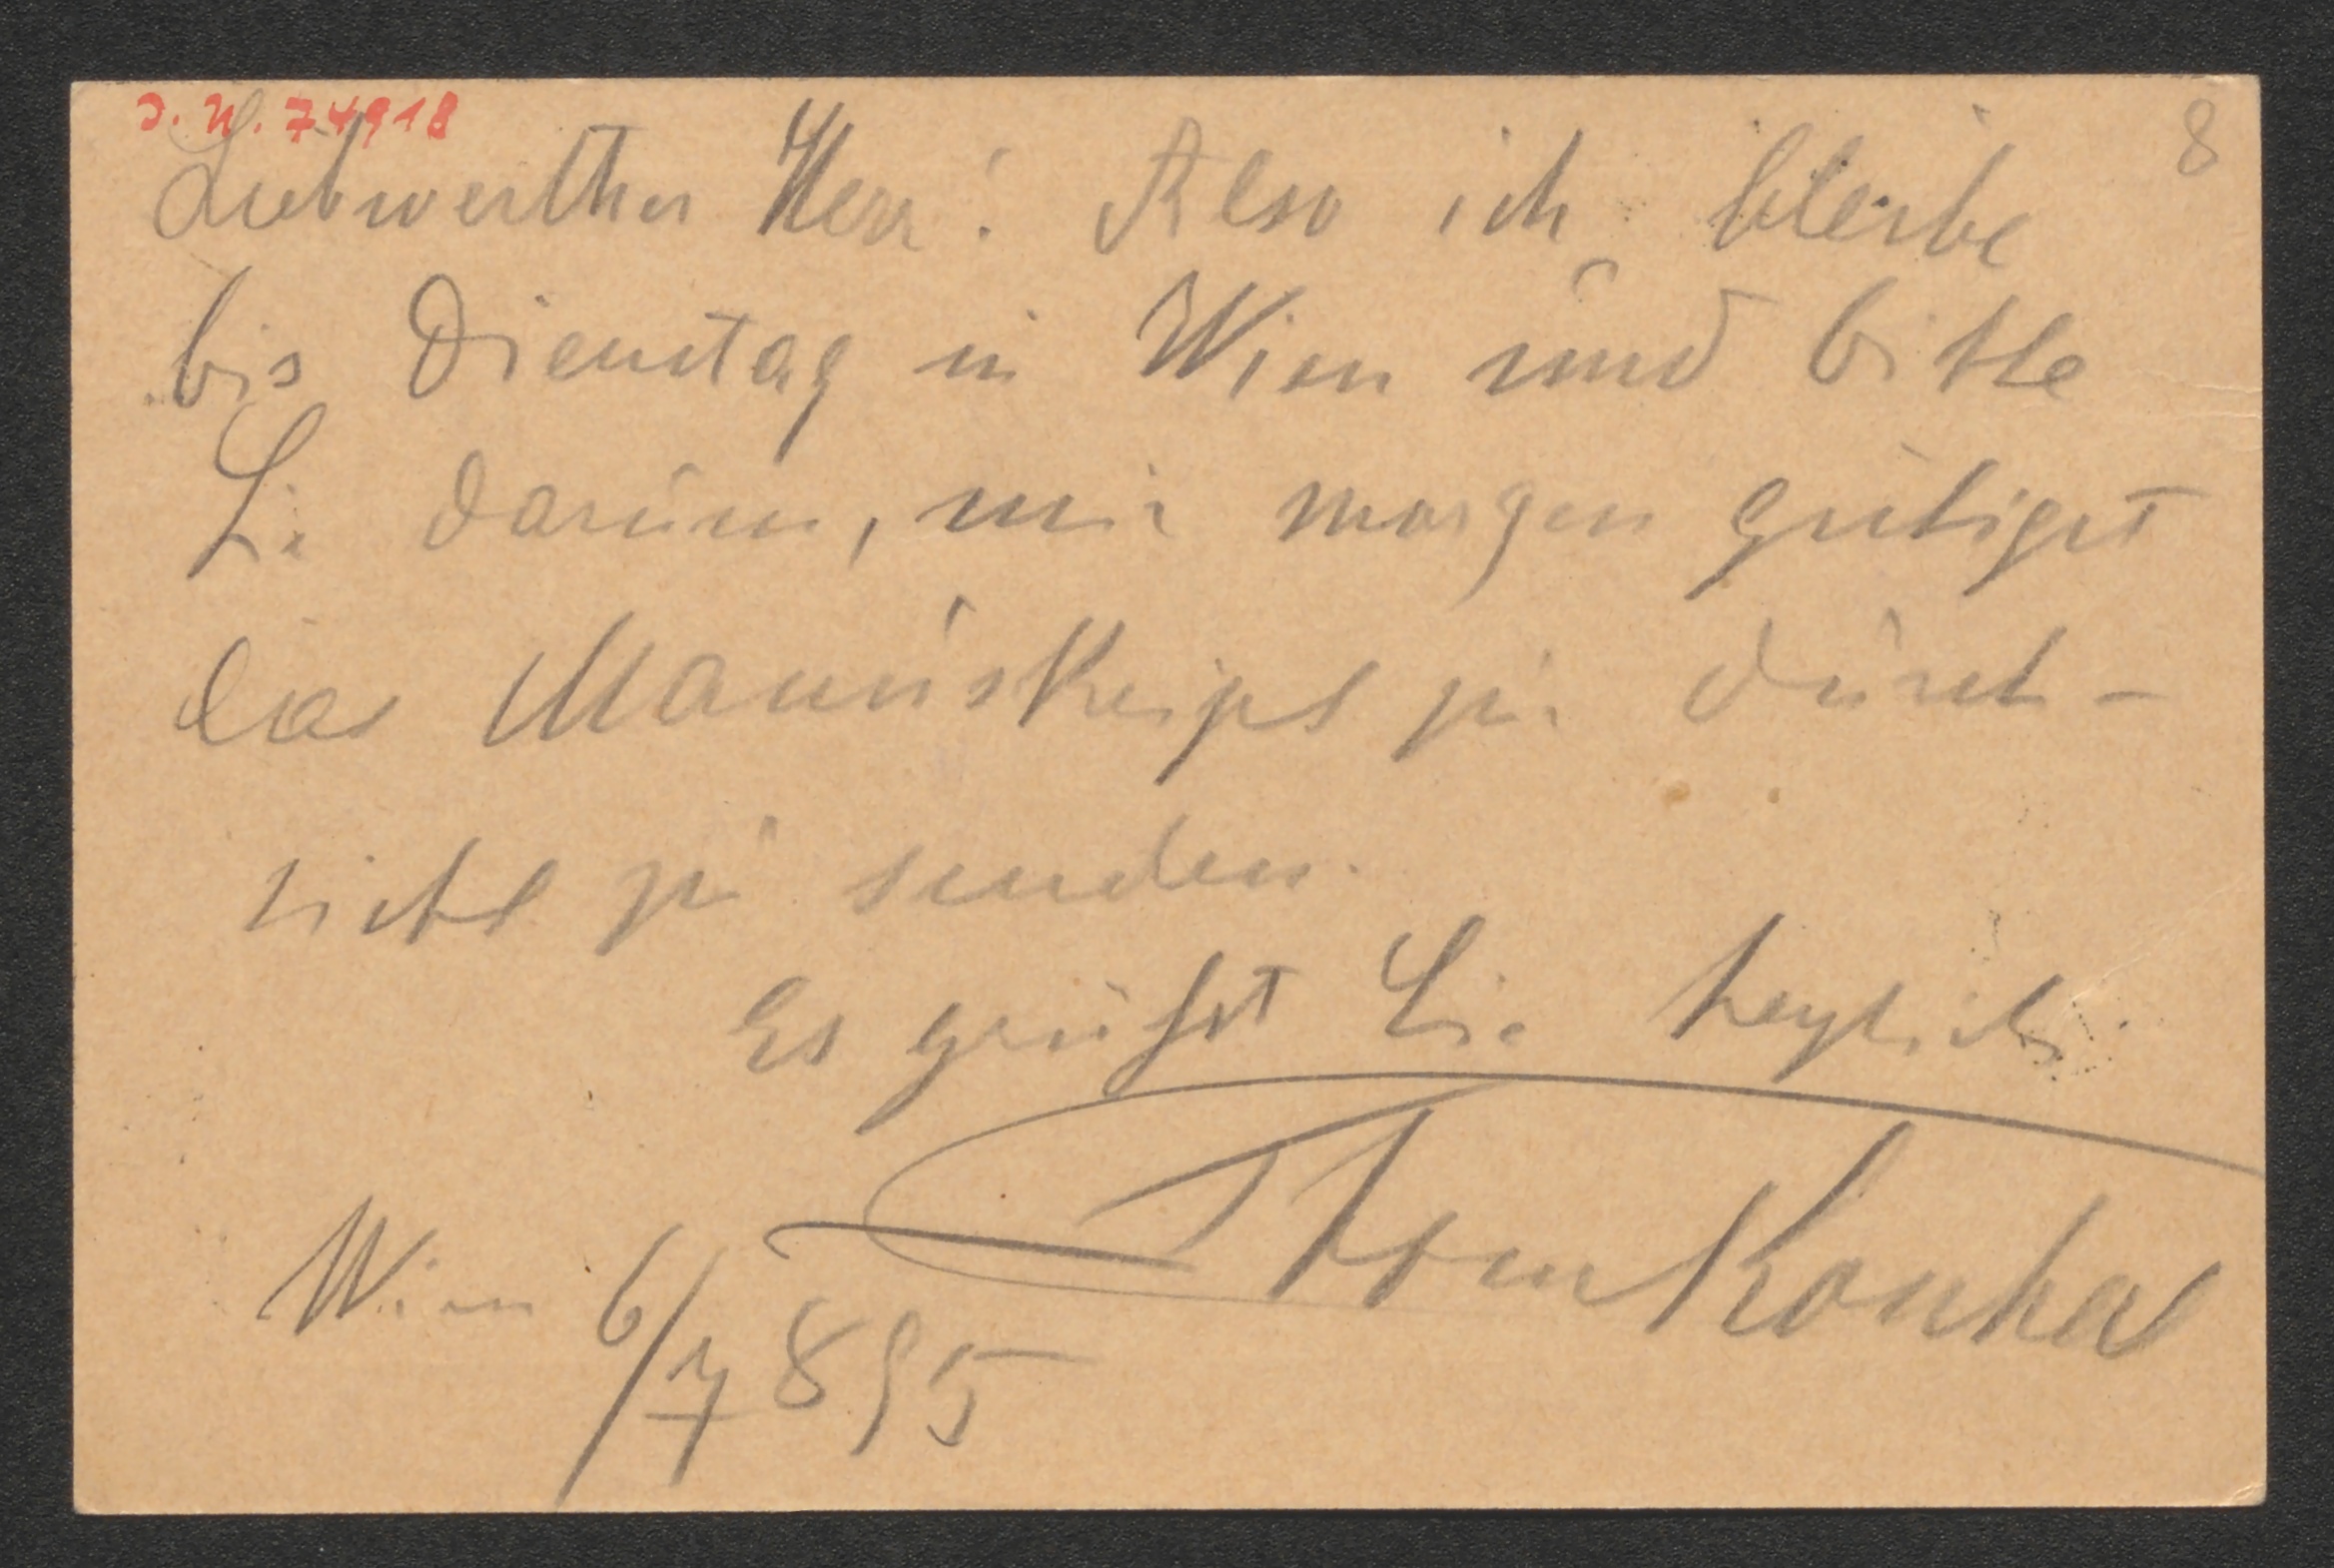 J. N. 74918
8
Liebwerther Herr! Also ich bleibe
bis Dienstag in Wien und bitte
Sie darum, mir morgen gütigst
das Manuskript zur Durch-
sicht zu senden.
Es grüßt Sie herzlich
Thom Kouhal
Wien 6/7 895